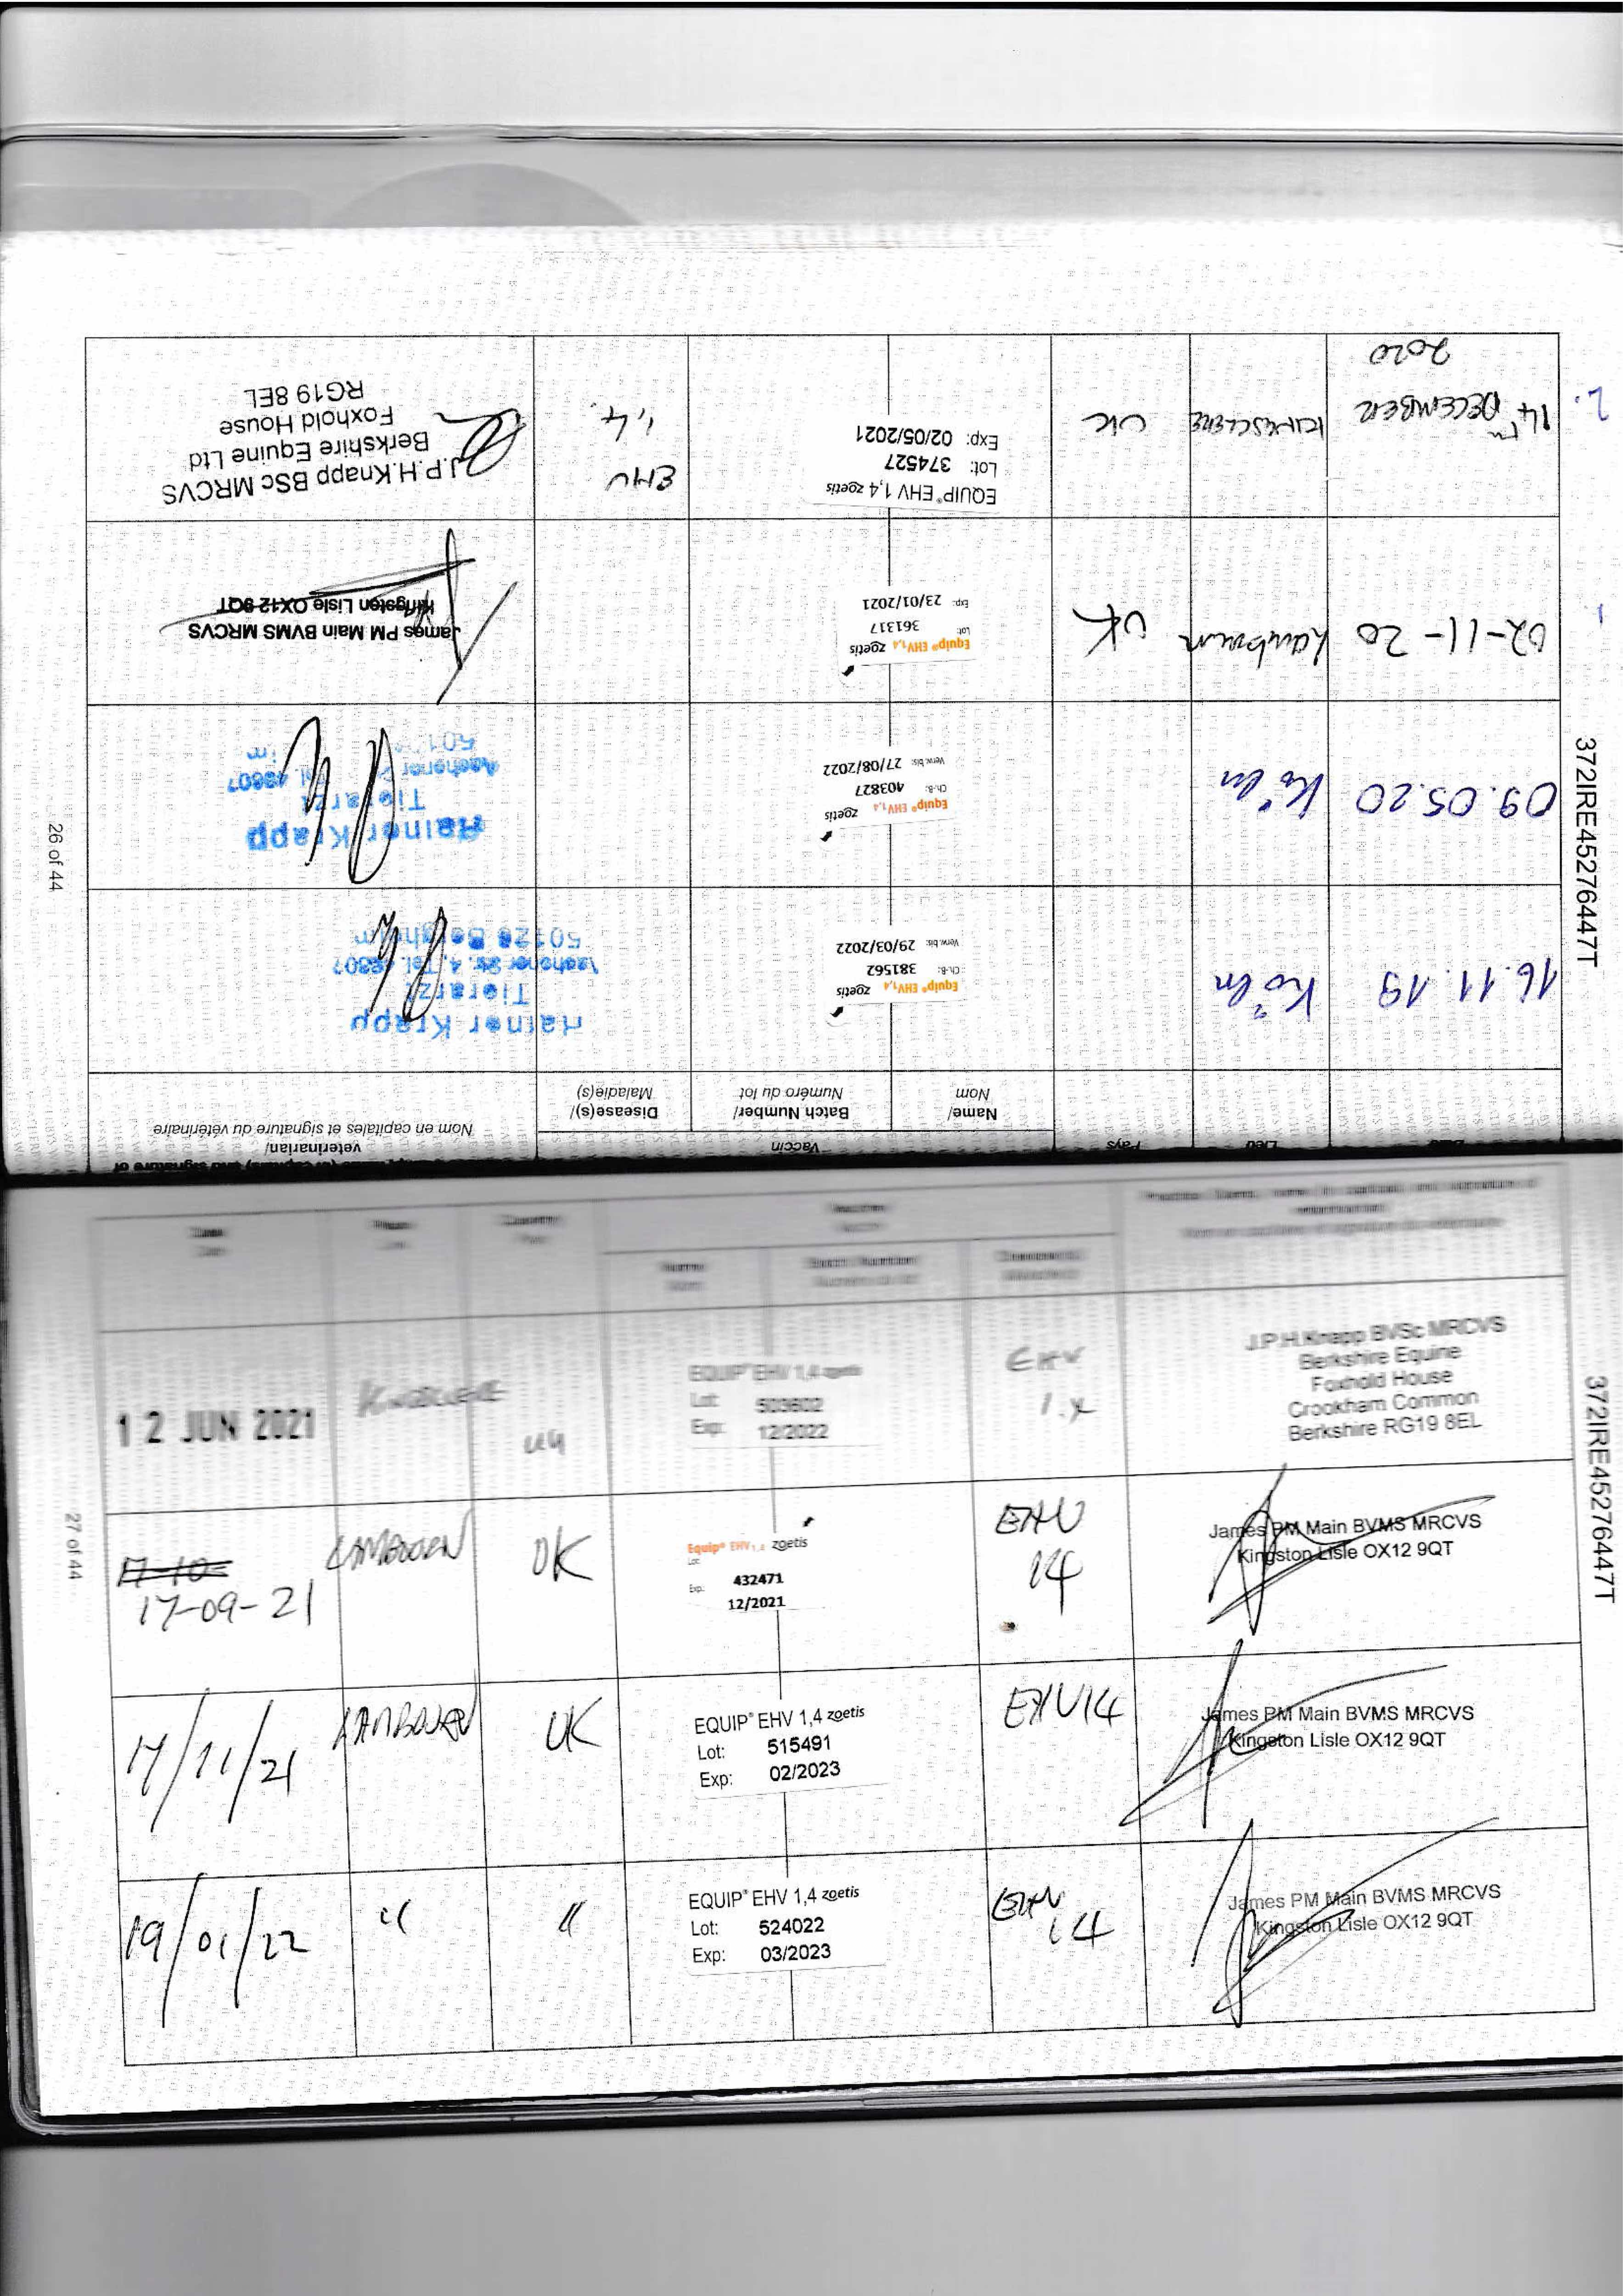 Date
Lieu
Pays
Vaccin
veterinarian/
Nom en capitales et signature du vétérinaire
Name/
Nom
Batch Number/
Numéro du lot
Disease(s)/
Maladie(s)
16.11.19
Köln
Equip® EHV 1,4 zoetis
Ch.-B.: 381562
Verw. bis: 29/03/2022
Rainer Krapp
Tierarzt
Aachener Str. 4, Tel. 43607
50126 Bergheim
09.05.20
Köln
Equip® EHV 1,4 zoetis
Ch.-B.: 403827
Verw. bis: 27/08/2022
Rainer Krapp
Tierarzt
Aachener
1.
02-11-20
Lambourn
UK
Equip® EHV 1,4 zoetis
Lot: 361317
Exp: 23/01/2021
James PM Main BVMS MRCVS
Kingston Lisle OX12 9QT
2.
14th DECEMBER
2020
KINGSCLERE
UK
EQUIP® EHV 1,4 zoetis
Lot: 374527
Exp: 02/05/2021
EHV
1,4
J.P.H.Knapp BSc MRCVS
Berkshire Equine Ltd
Foxhold House
RG19 8EL
372IRE45276447T
26 of 44
12 JUN 2021
KINGSCLERE
UK
EQUIP® EHV 1,4 zoetis
Lot: 503602
Exp: 12/2022
EHV
1.4
J.P.H.Knapp BVSc MRCVS
Berkshire Equine
Foxhold House
Crookham Common
Berkshire RG19 8EL
17-10-
17-09-21
LAMBOURN
UK
Equip® EHV 1,4 zoetis
Lot:
432471
Exp:
12/2021
EHV
14
James PM Main BVMS MRCVS
Kingston Lisle OX12 9QT
17/11/21
LAMBOURN
UK
EQUIP® EHV 1,4 zoetis
Lot: 515491
Exp: 02/2023
EHV14
James PM Main BVMS MRCVS
Kingston Lisle OX12 9QT
19/01/22
"
"
EQUIP® EHV 1,4 zoetis
Lot: 524022
Exp: 03/2023
EHV
14
James PM Main BVMS MRCVS
Kingston Lisle OX12 9QT
372IRE45276447T
27 of 44